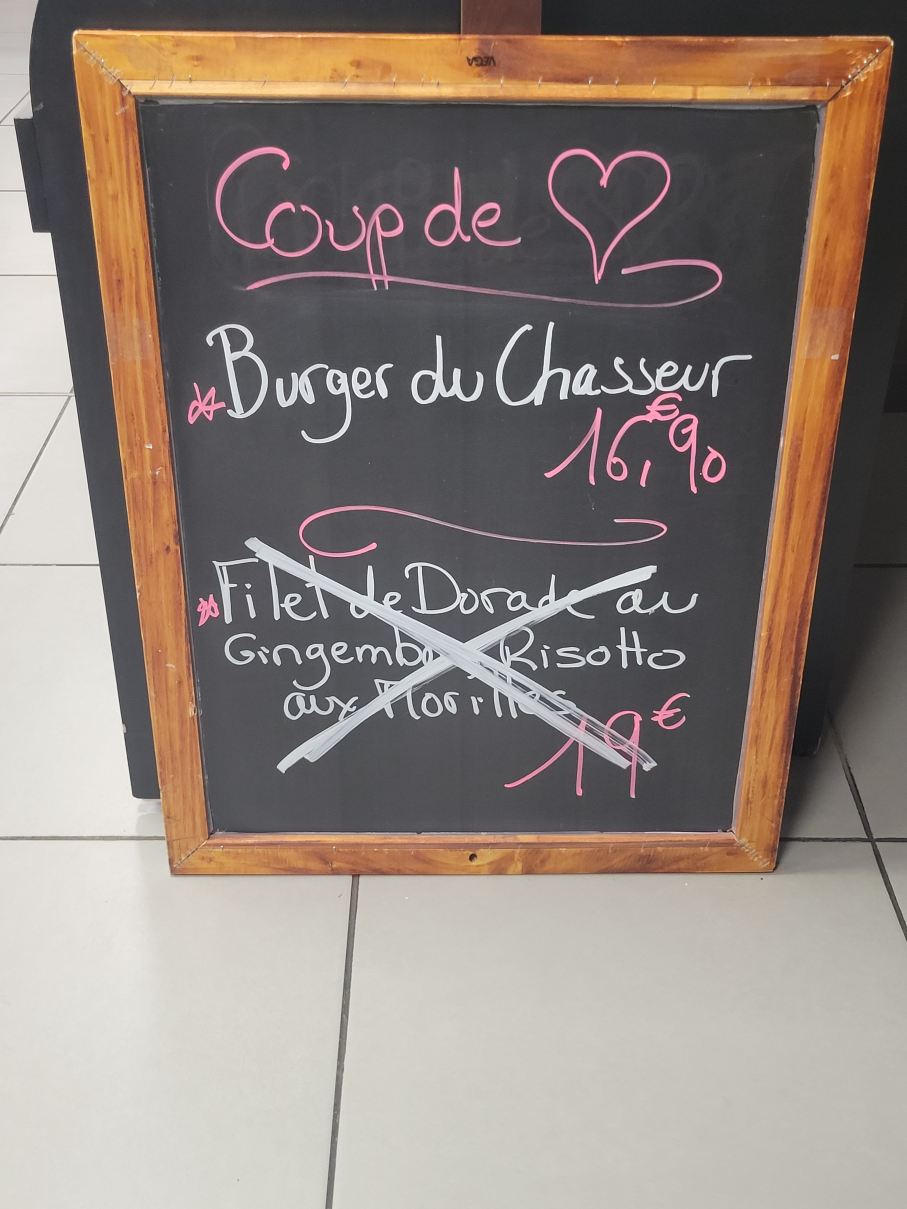 VEGA
Coup de
Burger du Chasseur
16,€90
Filet de Dorade au
Gingembre, Risotto
aux Morilles
19€